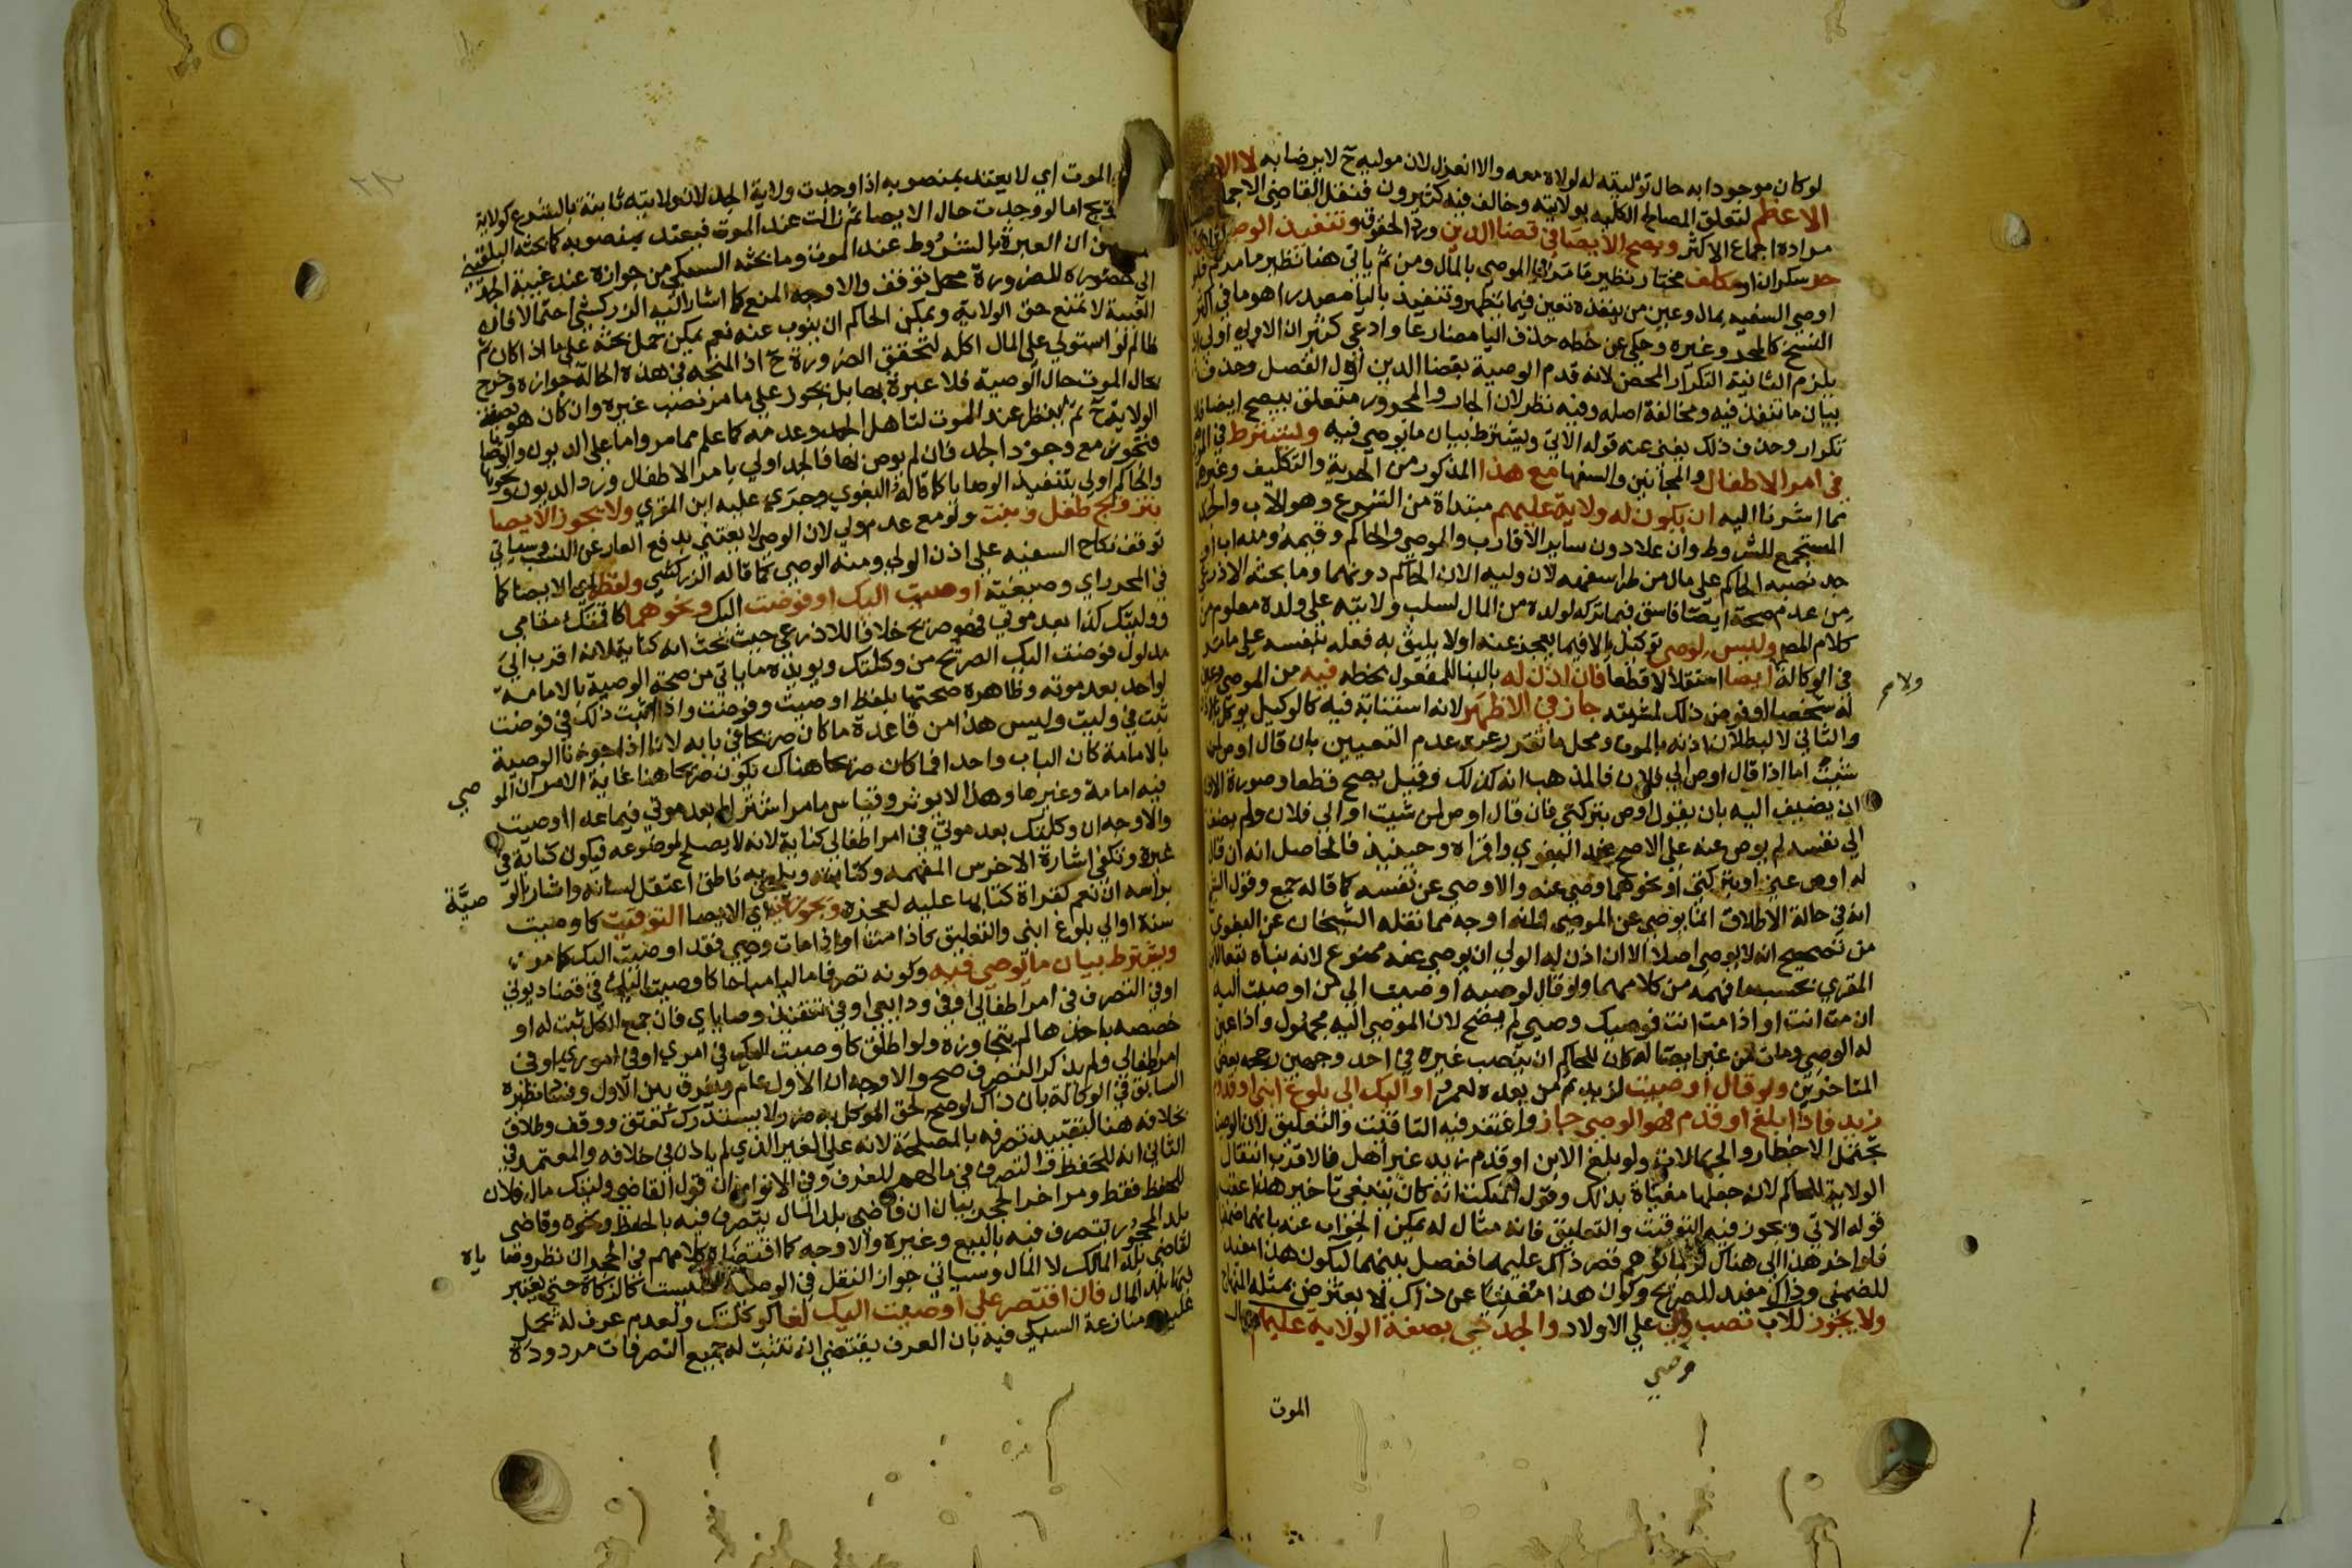 لو كان موجودا به حال توليته له لولاه معه والا انعزل لان موليه ح لا يرضا به لا الامام
الاعظم لتعلق المصالح الكليه بولايته وخالف فيه كثيرون فنقل القاضي الاجماع
مراده اجماع الاكثر ويصح الايصا في قضا الدين ورد الحقوق وتنفيذ الوصايا
حر سكران او مكلف مختار نظير ما مر في الموصي بالمال ومن ثم ياتي هنا نظير ما مر
اوصي السفيه بمال وعين من ينفذه تعين فيما يظهر وتنفيذ باليا مصدرا هو ما في اكثر
النسخ كالمحرر وغيره وحكي عن خطه حذف اليا مضارعا وادعي كثير ان الاولي اولي اذ
يلزم الثانية التكرار المحض لانه قدم الوصية بقضا الدين اول الفصل وحذف
بيان ما تنفذ فيه ومخالفة اصله وفيه نظر لان الجار والمجرور متعلق بيصح ايضا فلا
تكرار وحذف ذلك يغني عنه قوله الاتي ويشترط بيان ما يوصي فيه ويشترط في الموصي
في امر الاطفال والمجانين والسفها مع هذا المذكور من الحرية والتكليف وغيرهما
مما اشرنا اليه ان يكون له ولاية عليهم مبتداة من الشرع وهو الاب والجد
المستجمع للشروط وان علا دون ساير الاقارب والموصي والحاكم وقيمه ومنه اب او
جد نصبه الحاكم علي مال من طرا سفهه لان وليه الان الحاكم دونهما وما بحثه الاذرعي
من عدم صحة ايصا فاسق فيما تركه لولده من المال لسلب ولايته علي ولده معلوم من
كلام المص وليس لوصي توكيل الا فيما يعجز عنه او لا يليق به فعله بنفسه علي ما مر
في الوكالة ايصا استقلالا قطعا فان اذن له بالبنا للمفعول بخطه فيه من الموصي وعين
له شخصا او فوض ذلك لمشيته جاز في الاظهر لانه استنابة فيه كالوكيل يوكل بالاذن
والثاني لا لبطلان اذنه بالموت ومحل ما تقرر عند عدم التعيين بان قال اوص لمن
شيت اما اذا قال اوص الي فلان فالمذهب انه كذلك وقيل يصح قطعا وصورة الاذن
ان يضيف اليه بان يقول اوص بتركتي فان قال اوص لمن شيت او الي فلان ولم يضف
الي نفسه لم يوص عنه علي الاصح عند البغوي واقراه وحينيذ فالحاصل انه ان قال
له اوص عني او بتركتي او نحوهما وصي عنه والا وصي عن نفسه كما قاله جمع وقول
انه في حالة الاطلاق انما يوصي عن الموصي اوجه مما نقله الشيخان عن البغوي
من تصحيح انه لا يوصي اصلا الا ان اذن له الولي ان يوصي عنه ممنوع لانه بناه
المقري بحسب ما فهمه من كلامهما ولو قال لوصيه اوصيت الي من اوصيت اليه
ان مت انت او اذا مت انت فوصيك وصيي لم يصح لان الموصي اليه مجهول واذا عين
له الوصي ومات من غير ايصا له كان للحاكم ان ينصب غيره في احد وجهين رجحه بعض
المتاخرين ولو قال اوصيت لزيد ثم من بعده لعمرو او اليك الي بلوغ ابني او قدوم
زيد فاذا بلغ او قدم فهو الوصي جاز واغتفر فيه التاقيت والتعليق لان الوصايا
تحتمل الاخطار والجهالات ولو بلغ الابن او قدم زيد غير اهل فالاقرب انتقال
الولاية للحاكم لانه جعلها مغياة بذلك وقول المنكت انه كان ينبغي تاخير هذا عقب
قوله الاتي ويجوز فيه التوقيت والتعليق فانه مثال له يمكن الجواب عنه بانهما ضمنيا
فلو اخر هذا الي هناك لربما توهم قصر ذاك عليهما ففصل بينهما ليكون هذا مفيد
للضمني وذاك مفيد للصريح وكون هذا مغنيا عن ذاك لا يعترض بمثله المنهاج
ولا يجوز للاب نصب وصي علي الاولاد والجد حي بصفة الولاية عليهم حال
ولا صح
وصي
الموت
الموت اي لا يعتد بمنصوبه اذا وجدت ولاية الجد لان ولايته ثابتة بالشرع كولاية
اما لو وجدت حال الايصا ثم زالت عند الموت فيعتد بمنصوبه كما بحثه البلقيني
من ان العبرة بالشروط عند الموت وما بحثه السبكي من جوازه عند غيبة الجد
الي حضوره للضرورة محل توقف والاوجه المنع كما اشار اليه الزركشي احتمالا فان
الغيبة لا تمنع حق الولاية ويمكن الحاكم ان ينوب عنه نعم يمكن حمل بحثه علي ما اذا كان ثم
ظالم لو استولي علي المال اكله لتحقق الضرورة ح اذ المتجه في هذه الحالة جوازه وخرج
بحال الموت حال الوصية فلا عبرة بها بل يجوز علي ما مر نصب غيره وان كان هو بصفة
الولاية ح ثم ينظر عند الموت لتاهل الجد وعدمه كما علم مما مر واما علي الديون والوصايا
فتجوز مع وجود الجد فان لم يوص لها فالجد اولي بامر الاطفال ورد الديون ونحوها
والحاكم اولي بتنفيذ الوصايا كما قاله البغوي وجري عليه ابن المقري ولا يجوز الايصا
بتزويج طفل وبنت ولو مع عدم ولي لان الوصي لا يعتني بدفع العار عن النسب وسياتي
توقف نكاح السفيه علي اذن الولي ومنه الوصي كما قاله الزركشي ولفظه اي الايصا كما
في المحرر اي وصيغته اوصيت اليك او فوضت اليك ونحوهما كاقمتك مقامي
ووليتك كذا بعد موتي فهو صريح خلافا للاذرعي حيث بحث انه كناية لانه اقرب الي
مدلول فوضت اليك الصريح من وكلتك ويويده ما ياتي من صحة الوصية بالامامة
لواحد بعد موته وظاهره صحتها بلفظ اوصيت وفوضت واذا ثبت ذلك في فوضت
ثبت في وليت وليس هذا من قاعدة ما كان صريحا في بابه لانا اذا جوزنا الوصية
بالامامة كان الباب واحدا فما كان صريحا هناك يكون صريحا هنا غاية الامر ان المو
صي
فيه امامة وغيرها وهذا لا يوثر وقياس ما مر اشتراط بعد موتي فيما عدا اوصيت
والاوجه ان وكلتك بعد موتي في امر اطفالي كناية لانه لا يصلح لموضوعه فيكون كناية في
غيره وتكفي اشارة الاخرس المفهمه وكتابته ويلحق به ناطق اعتقل لسانه واشار بالو
صية
براسه ان نعم كقراة كتابها عليه لعجزه ويجوز فيه اي الايصا التوقيت كاوصيت
سنة او الي بلوغ ابني والتعليق كاذا مت او اذا مات وصيي فقد اوصيت اليك كما مر
ويشترط بيان ما يوصي فيه وكونه تصرفا ماليا مباحا كاوصيت اليك في قضا ديوني
او في التصرف في امر اطفالي او في ودايعي او في تنفيذ وصاياي فان جمع الكل ثبت له او
خصصه باحدها لم يتجاوزه ولو اطلق كاوصيت اليك في امري او في اموري او في
امر اطفالي ولم يذكر التصرف صح والاوجه ان الاول عام ويفرق بين الاول وفيما نظيره
السابق في الوكالة بان ذاك لو صح لحق الموكل به ضرر لا يستدرك كعتق ووقف وطلاق
بخلافه هنا لتقييد تصرفه بالمصلحة لانه علي الغير الذي لم ياذن في خلافه والمعتمد في
الثاني انه للحفظ والتصرف في مالهم للعرف وفي الانوار ان قول القاضي وليتك مال فلان
للحفظ فقط ومر اخر الحجر بيان ان قاضي بلد المال يتصرف فيه بالحفظ ونحوه وقاضي
بلد المحجور يتصرف فيه بالبيع وغيره والاوجه كما اقتضاه كلامهم في الحجر ان نظر وصا
ياه
لقاضي بلد المالك لا المال وسياتي جواز النقل في الوصية فليست كالزكاة حتي يعتبر
فيها بلد المال فان اقتصر علي اوصيت اليك لغا كوكلتك ولعدم عرف له يحمل
عليه ومنازعة السبكي فيه بان العرف يقتضي انه تثبت له جميع التصرفات مردودة